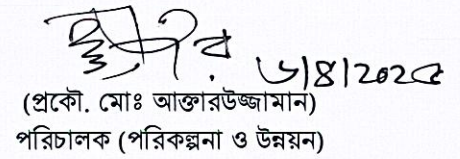 ৬/৪/২০২৫
(প্রকৌ. মোঃ আক্তারউজ্জামান)
পরিচালক (পরিকল্পনা ও উন্নয়ন)